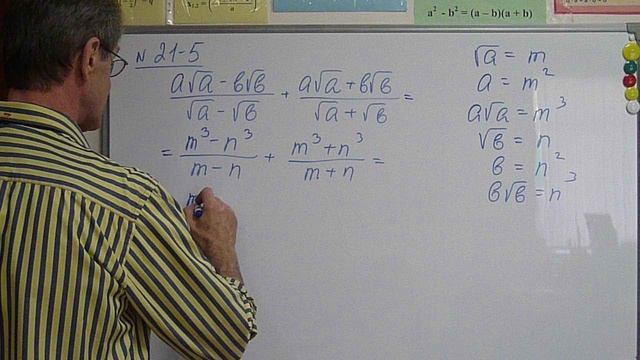 a² - b² = (a – b)(a + b)
N 21-5
a√a - b√b / √a - √b + a√a + b√b / √a + √b =
= m³ - n³ / m - n + m³ + n³ / m + n =
m
√a = m
a = m²
a√a = m³
√b = n
b = n²
b√b = n³